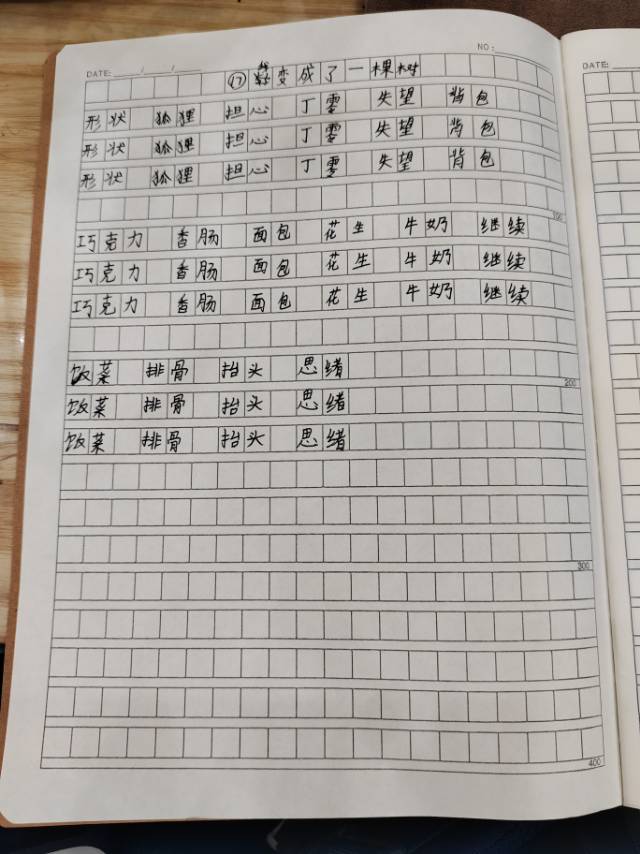 NO:
DATE: / /
DATE:
⑰ 我变成了一棵树
形状 狐狸 担心 丁零 失望 背包
形状 狐狸 担心 丁零 失望 背包
形状 狐狸 担心 丁零 失望 背包
100
巧克力 香肠 面包 花生 牛奶 继续
巧克力 香肠 面包 花生 牛奶 继续
巧克力 香肠 面包 花生 牛奶 继续
饭菜 排骨 抬头 思绪
200
饭菜 排骨 抬头 思绪
饭菜 排骨 抬头 思绪
300
400